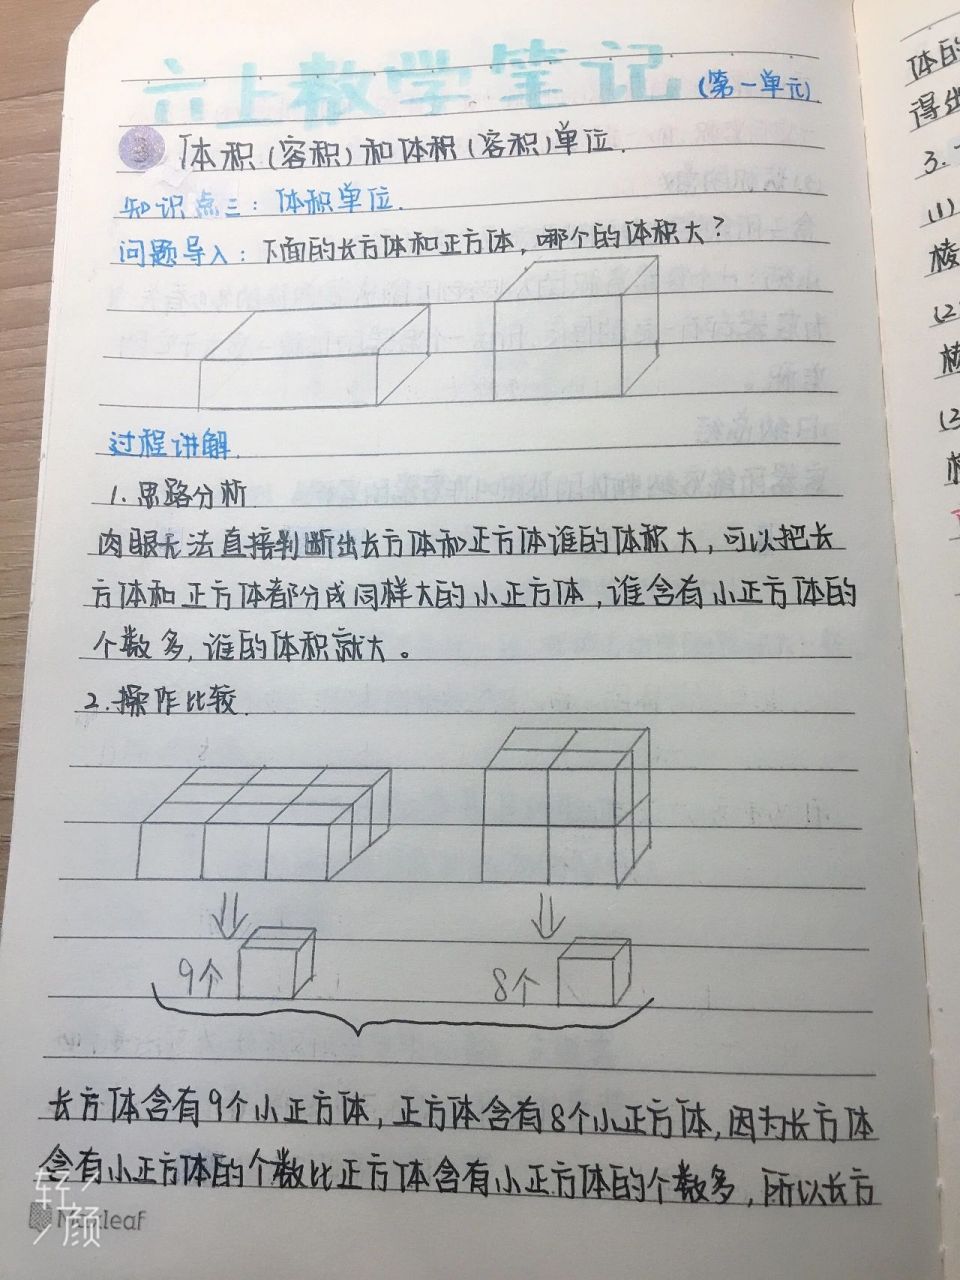 六上数学笔记 (第一单元)
体积(容积)和体积(容积)单位.
知识点三:体积单位.
问题导入:下面的长方体和正方体,哪个的体积大?
过程讲解.
1.思路分析.
肉眼无法直接判断出长方体和正方体谁的体积大,可以把长
方体和正方体都分成同样大的小正方体,谁含有小正方体的
个数多,谁的体积就大。
2.操作比较.
9个
8个
长方体含有9个小正方体,正方体含有8个小正方体,因为长方体
含有小正方体的个数比正方体含有小正方体的个数多,所以长方
体的
得出
3.
(1)
棱
(2)
(3)
轻颜